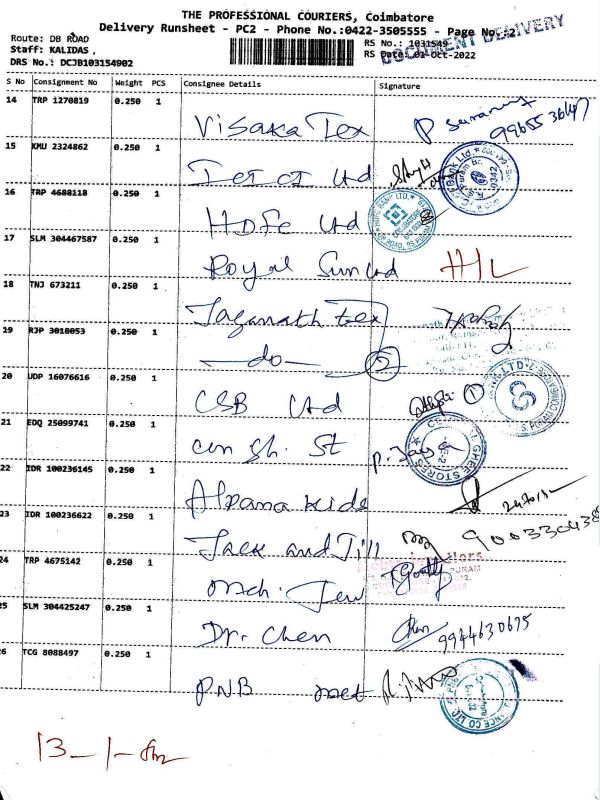 THE PROFESSIONAL COURIERS, Coimbatore
Delivery Runsheet - PC2 - Phone No.:0422-3505555 - Page No.:2
DOCUMENT DELIVERY
Route: DB ROAD
Staff: KALIDAS ,
DRS No.: DCJB103154902
RS No.: 1031549
RS Date: 01-Oct-2022
S No Consignment No Weight PCS Consignee Details Signature
14 TRP 1270819 0.250 1 Visaka Tex
15 KMU 2324862 0.250 1 Ltd
16 TRP 4688118 0.250 1 HDFC Ltd
17 SLM 304467587 0.250 1 Royal Sun Ltd
18 TNJ 673211 0.250 1 Jaganath Tex
19 RJP 3018053 0.250 1 -do- 2
20 UDP 16076616 0.250 1 CSB Ltd 1
21 EDQ 25099741 0.250 1 St P. Jaya
22 IDR 100236145 0.250 1 Alpana kids
23 IDR 100236622 0.250 1 Jack and Jill
24 TRP 4675142 0.250 1 mch. Jew
25 SLM 304425247 0.250 1 Dr. Chen 9944630675
26 TCG 8088497 0.250 1 PNB met
13-1-